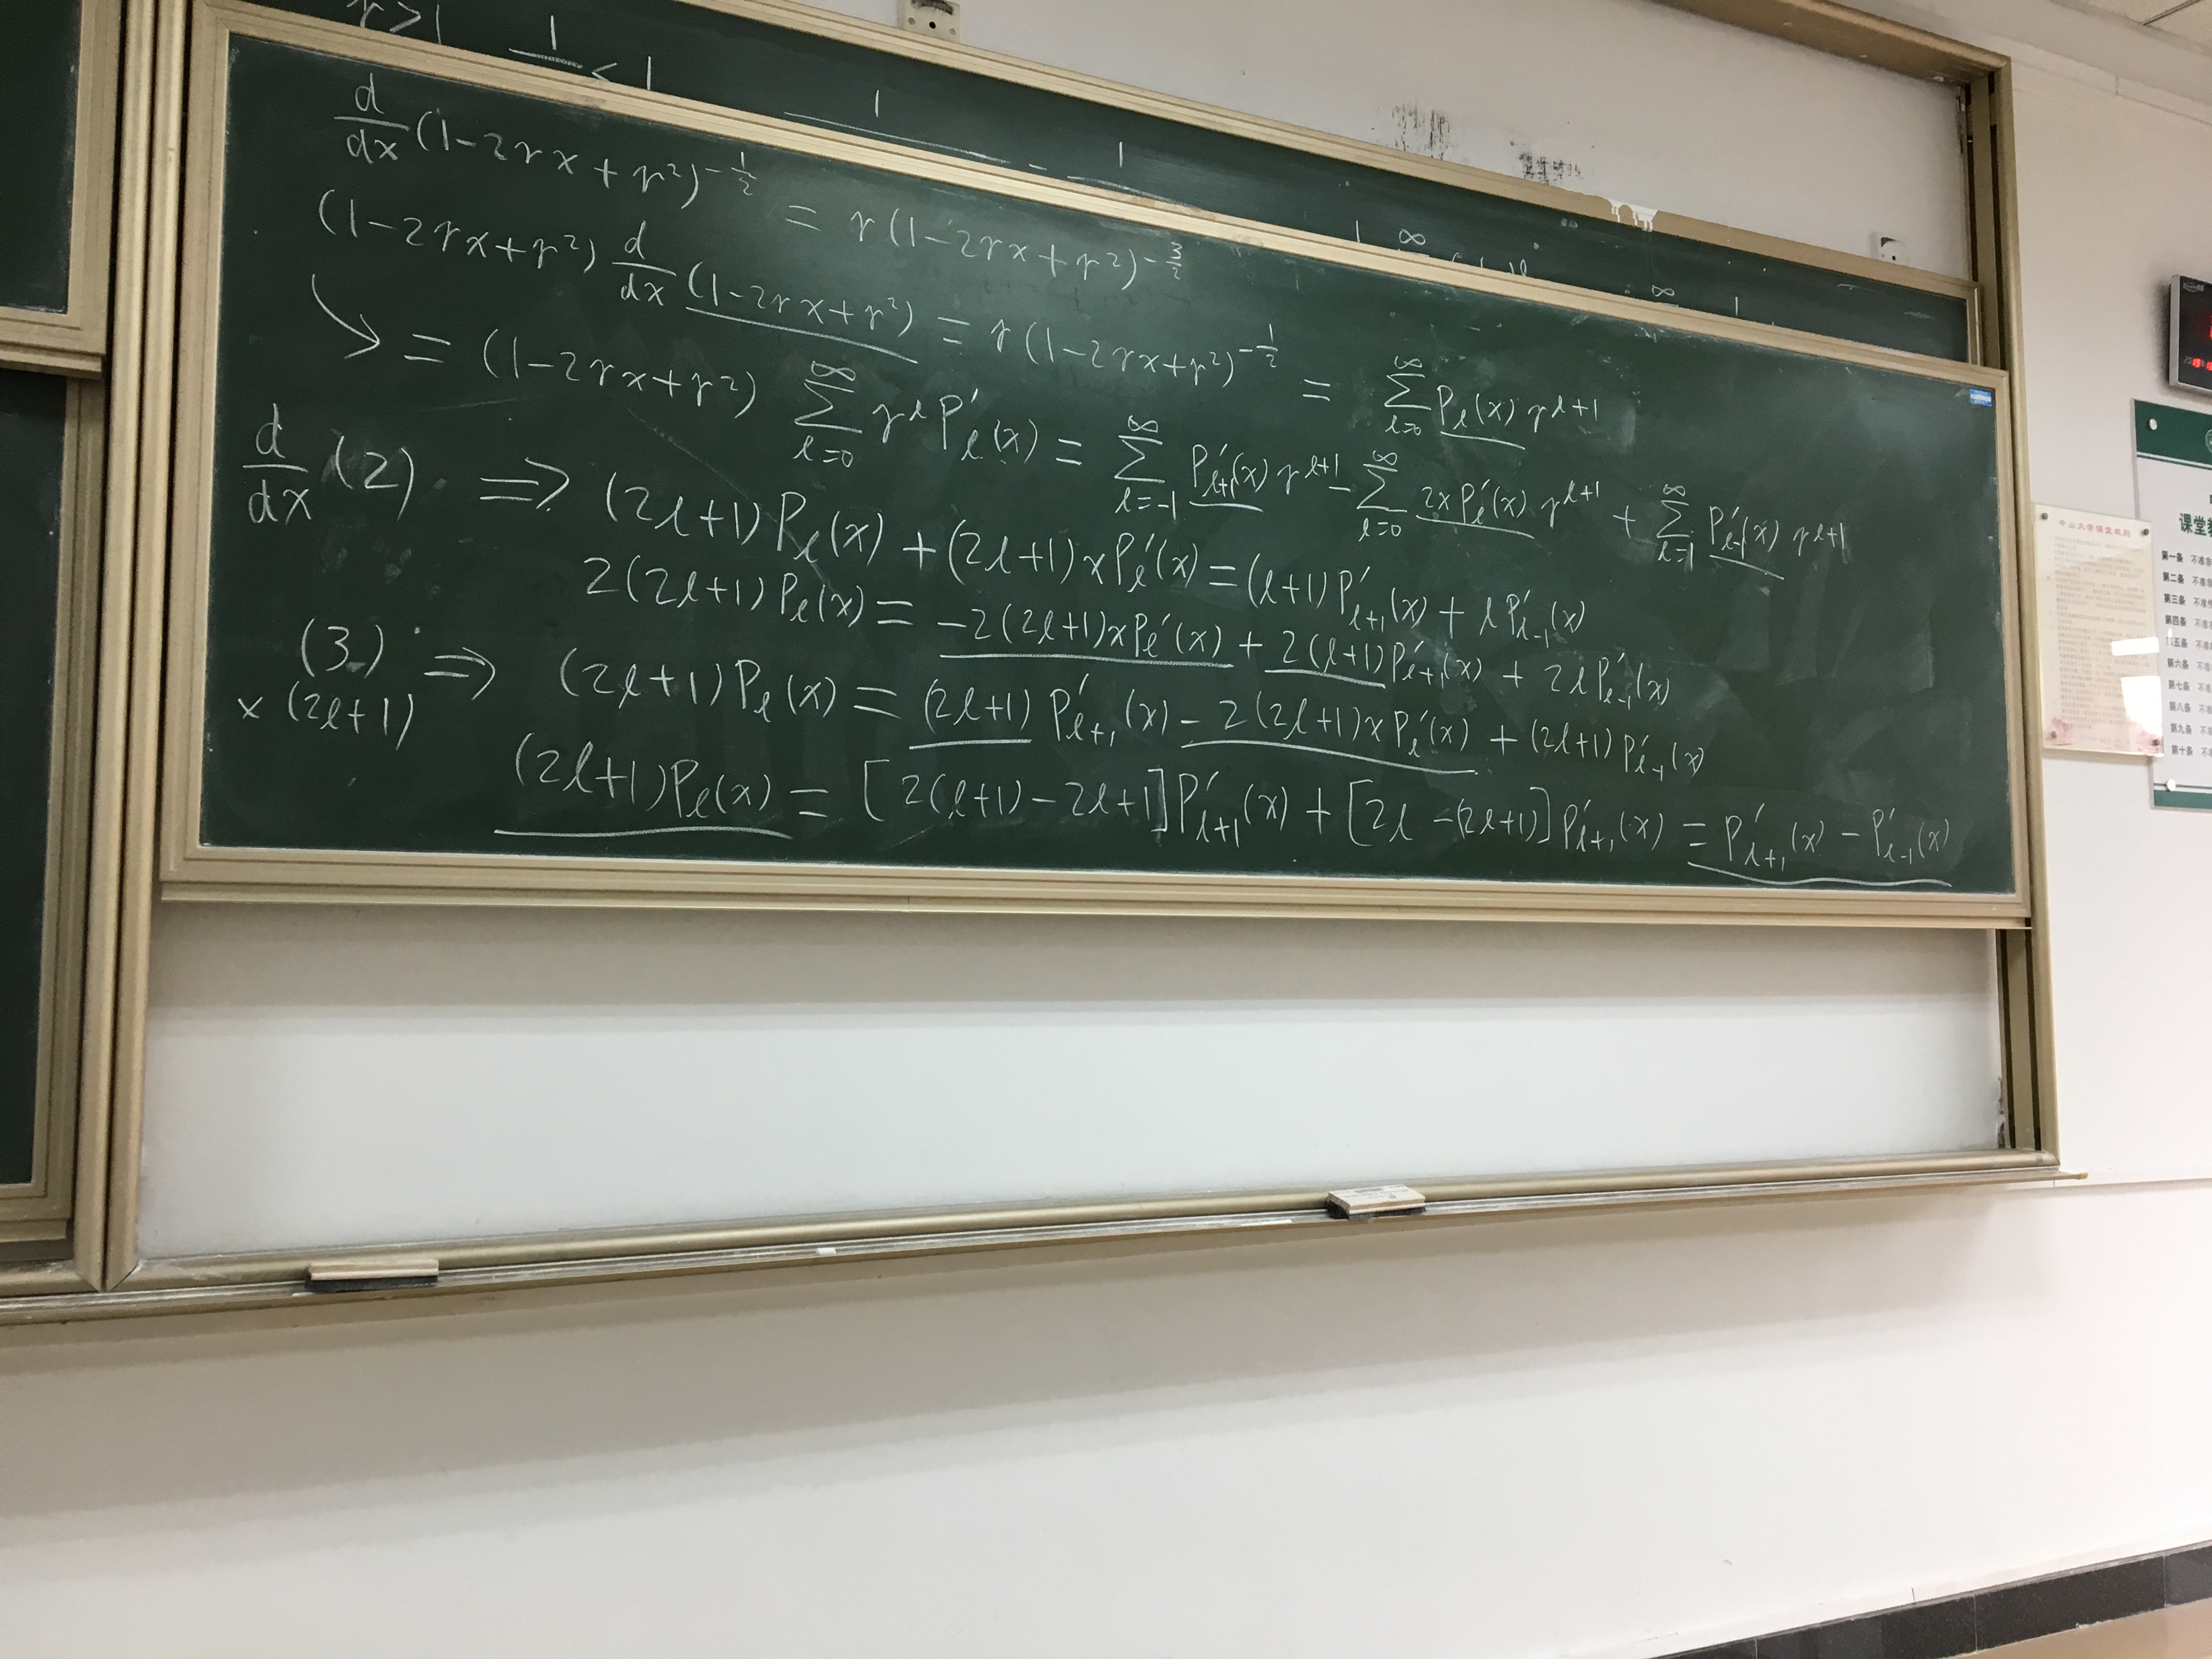 r>1 1/ <1
1 - 1
1 ∞
∞ 1
d/dx (1-2rx+r²)^{-1/2} = r(1-2rx+r²)^{-3/2}
(1-2rx+r²) d/dx (1-2rx+r²) = r(1-2rx+r²)^{-1/2} = ∑_{l=0}^{∞} P_l(x) r^{l+1}
↘ = (1-2rx+r²) ∑_{l=0}^{∞} r^l P'_l(x) = ∑_{l=-1}^{∞} P'_{l+1}(x) r^{l+1} - ∑_{l=0}^{∞} 2xP'_l(x) r^{l+1} + ∑_{l=1}^{∞} P'_{l-1}(x) r^{l+1}
d/dx (2) ⇒ (2l+1)P_l(x) + (2l+1)xP'_l(x) = (l+1)P'_{l+1}(x) + lP'_{l-1}(x)
2(2l+1)P_l(x) = -2(2l+1)xP'_l(x) + 2(l+1)P'_{l+1}(x) + 2lP'_{l-1}(x)
(3) × (2l+1) ⇒ (2l+1)P_l(x) = (2l+1)P'_{l+1}(x) - 2(2l+1)xP'_l(x) + (2l+1)P'_{l-1}(x)
(2l+1)P_l(x) = [2(l+1)-2l+1]P'_{l+1}(x) + [2l-(2l+1)]P'_{l+1}(x) = P'_{l+1}(x) - P'_{l-1}(x)
中山大学课堂规则
课堂
第一条 不准
第二条 不准
第三条 不准
第四条 不准
第五条 不准
第六条 不准
第七条 不准
第八条 不准
第九条 不准
第十条 不准